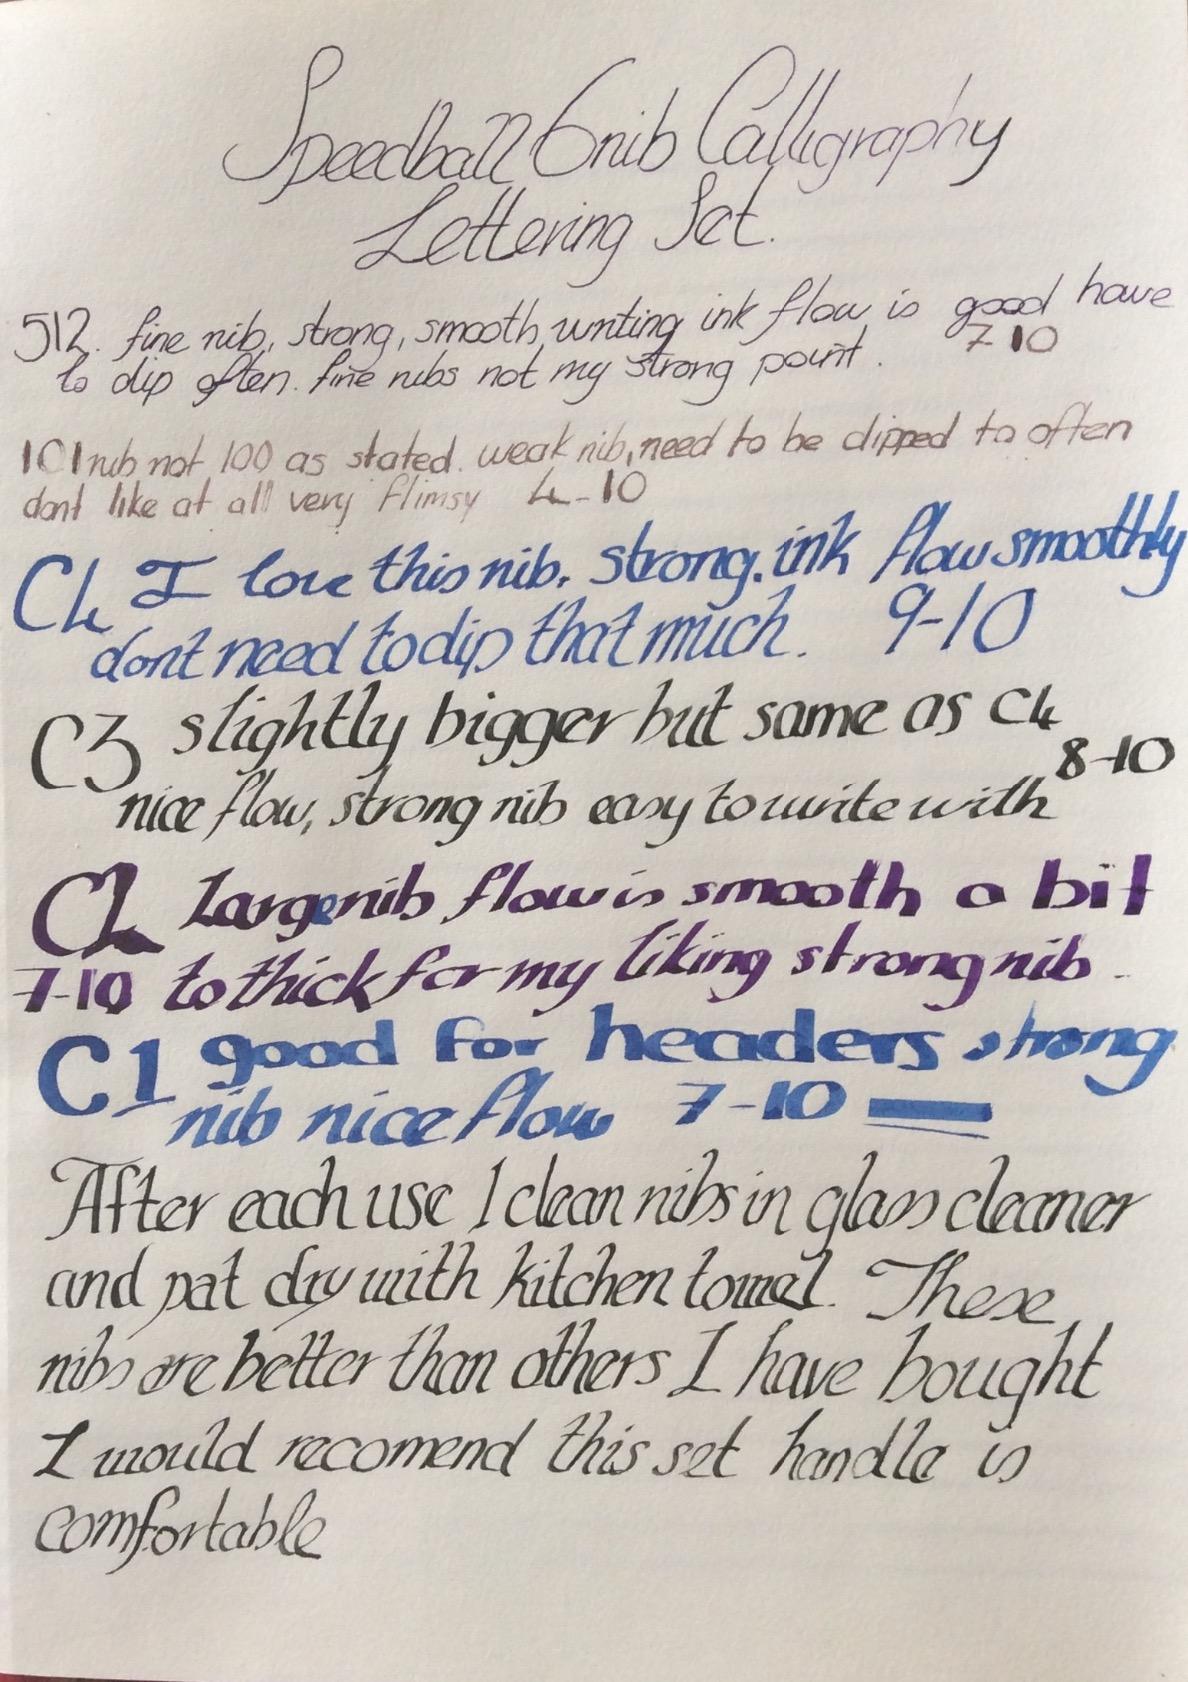 Speedball 6 nib Calligraphy
Lettering Set.
512. fine nib, strong, smooth writing ink flow is good have
to dip often. fine nibs not my strong point. 7 10
101 nib not 100 as stated. weak nib, need to be dipped to often
dont like at all very flimsy 4-10
C4 I love this nib. strong. ink flow smoothly
dont need to dip that much. 9-10
C3 slightly bigger but same as C4
nice flow, strong nib easy to write with 8-10
C2 Large nib flow is smooth a bit
7-10 to thick for my liking strong nib.
C1 good for headers strong
nib nice flow 7-10
After each use I clean nibs in glass cleaner
and pat dry with kitchen towel. These
nibs are better than others I have bought
I would recomend this set handle is
comfortable